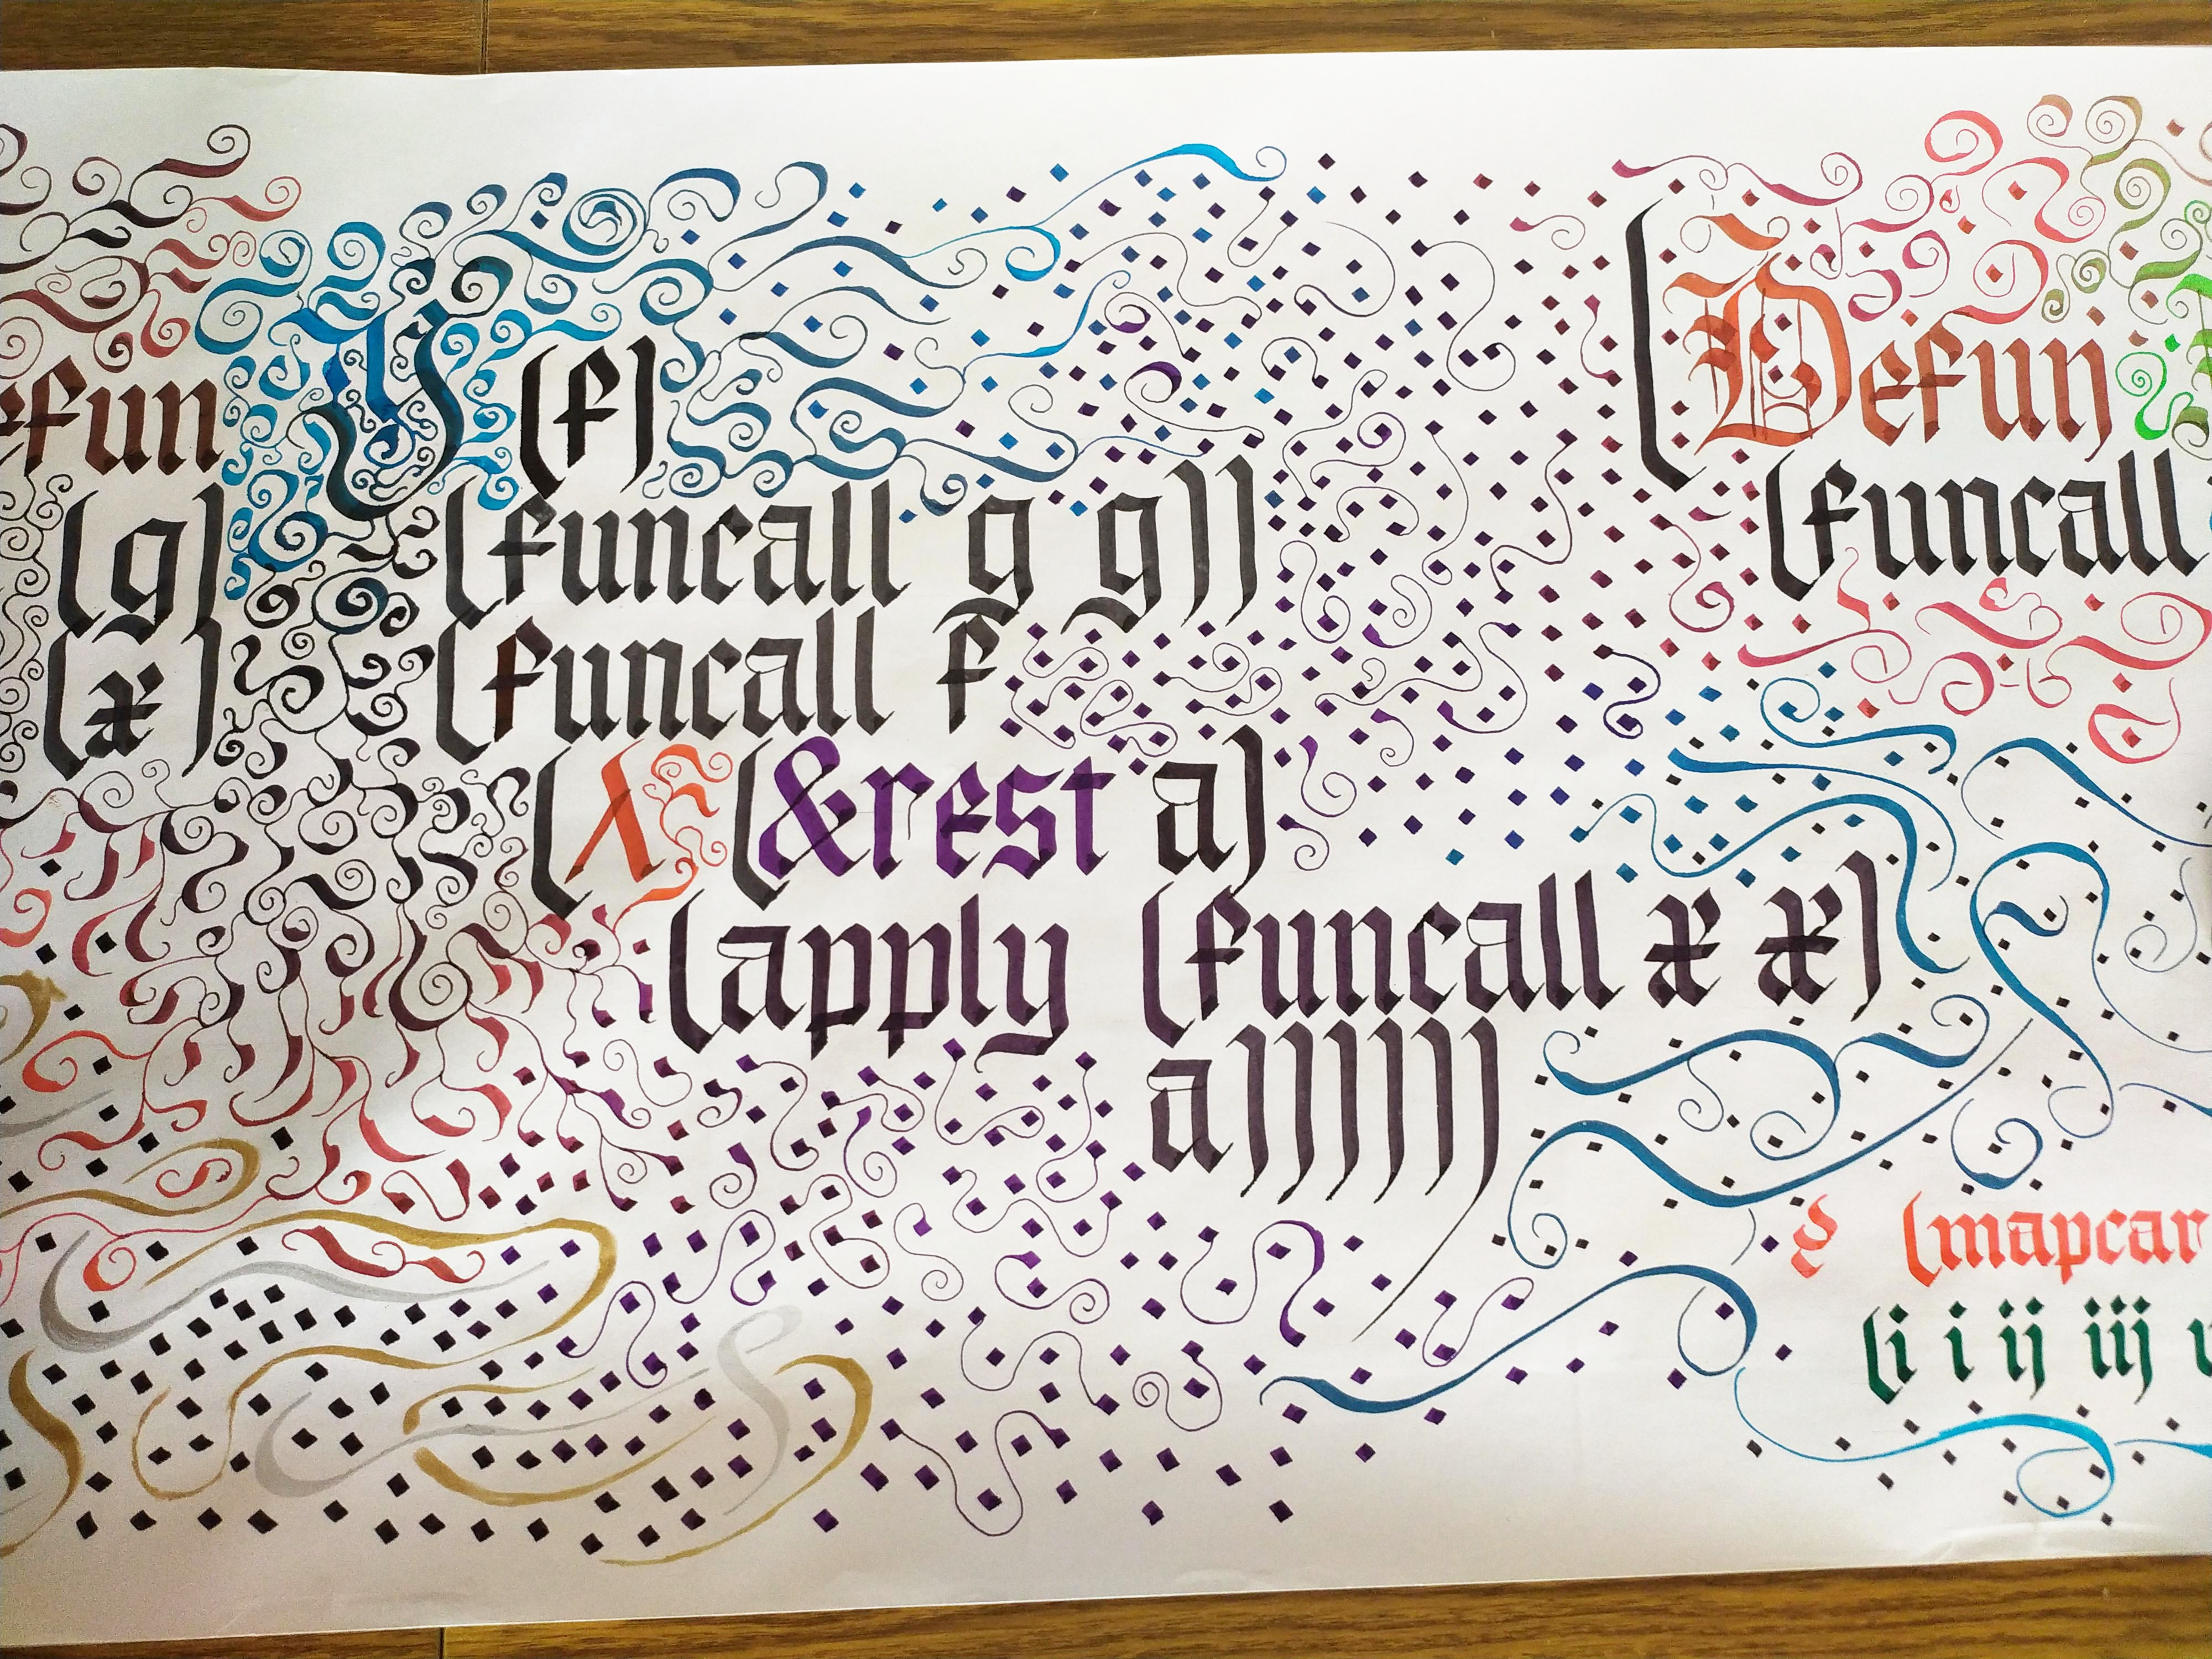 efun Y (f)
(g) (funcall g g))
(x) (funcall f
(λ (&rest a)
(apply (funcall x x)
a))))))
(Defun
(funcall
(mapcar
(i i ij iij